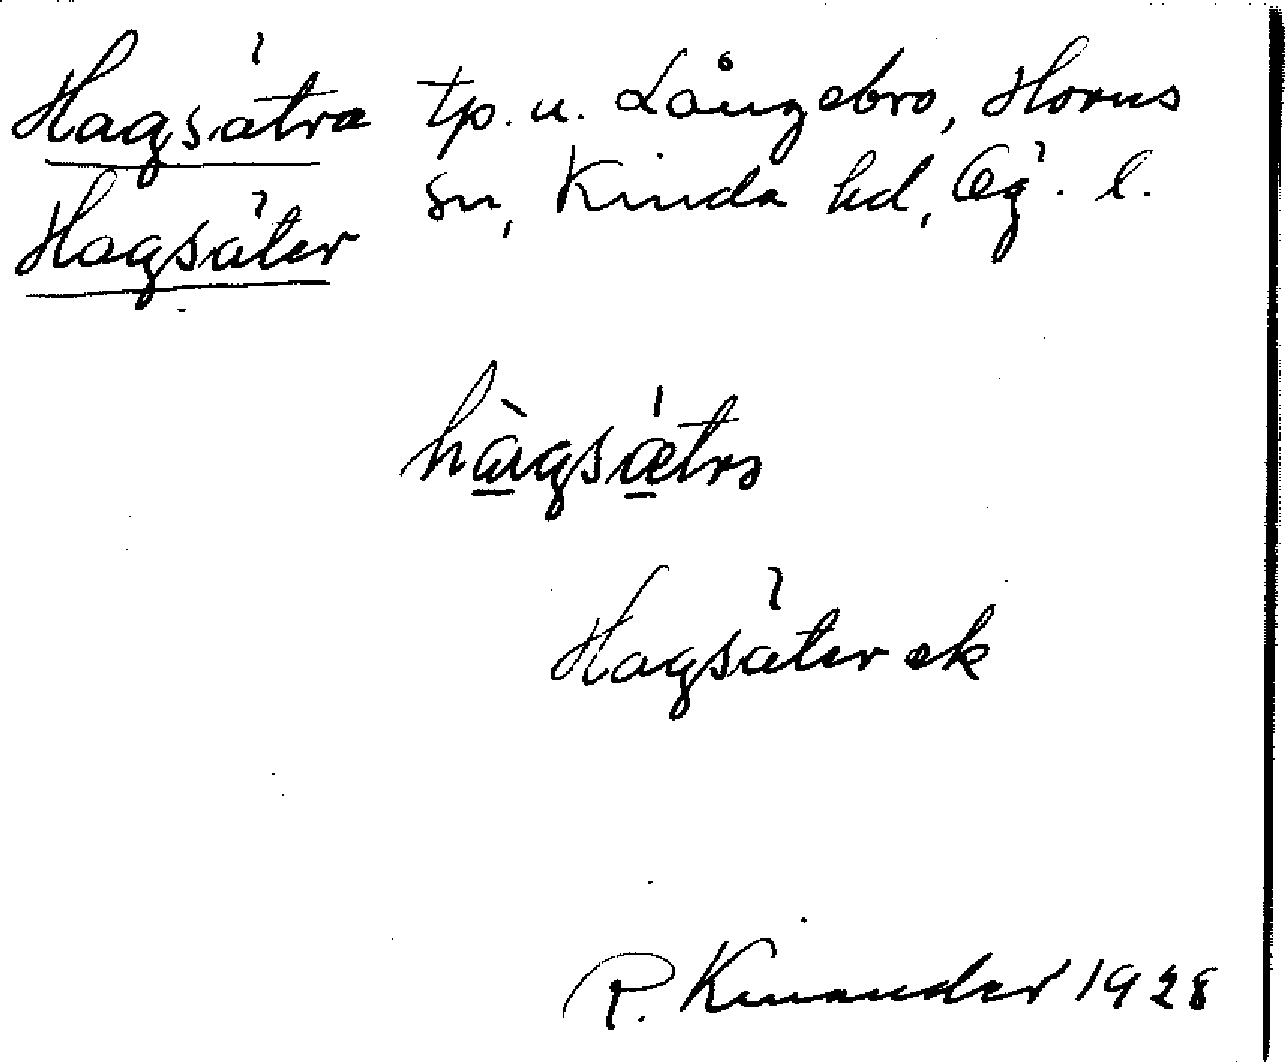 Hagsätra tp. u. Långebro, Horns
Hagsäter sn, Kinda hd, Ög. l.
hàgsǽtrə
Hagsäter ek
R. Kinander 1928